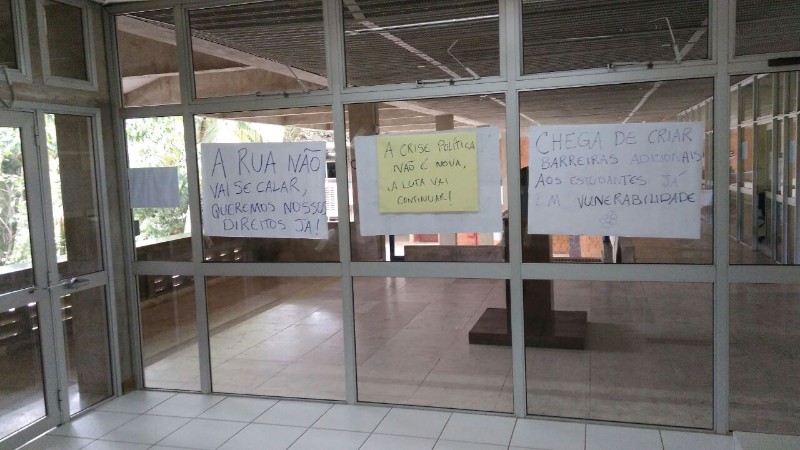 A RUA NÃO
VAI SE CALAR,
QUEREMOS NOSSOS
DIREITOS JÁ!
A CRISE POLÍTICA
NÃO É NOVA,
A LUTA VAI
CONTINUAR!
CHEGA DE CRIAR
BARREIRAS ADICIONAIS
AOS ESTUDANTES JÁ
EM VUNERABILIDADE